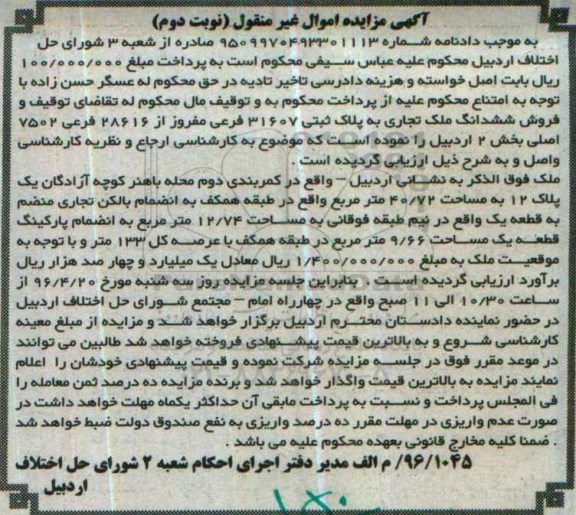 آگهی مزایده اموال غیر منقول (نوبت دوم)
به موجب دادنامه شماره ۹۵۰۹۹۷۰۴۹۳۳۰۱۱۱۳ صادره از شعبه ۳ شورای حل
اختلاف اردبیل محکوم علیه عباس سیفی محکوم است به پرداخت مبلغ ۱۰۰/۰۰۰/۰۰۰
ریال بابت اصل خواسته و هزینه دادرسی تاخیر تادیه در حق محکوم له عسگر حسن زاده با
توجه به امتناع محکوم علیه از پرداخت محکوم به و توقیف مال محکوم له تقاضای توقیف و
فروش ششدانگ ملک تجاری به پلاک ثبتی ۳۱۶۰۷ فرعی مفروز از ۲۸۶۱۶ فرعی ۷۵۰۲
اصلی بخش ۲ اردبیل را نموده است که موضوع به کارشناسی ارجاع و نظریه کارشناسی
واصل و به شرح ذیل ارزیابی گردیده است .
ملک فوق الذکر به نشانی اردبیل – واقع در کمربندی دوم محله باهنر کوچه آزادگان یک
پلاک ۱۲ به مساحت ۴۰/۷۲ متر مربع واقع در طبقه همکف به انضمام بالکن تجاری منضم
به قطعه یک واقع در نیم طبقه فوقانی به مساحت ۱۲/۷۴ متر مربع به انضمام پارکینگ
قطعه یک مساحت ۹/۶۶ متر مربع در طبقه همکف با عرصه کل ۱۳۳ متر و با توجه به
موقعیت ملک به مبلغ ۱/۴۰۰/۰۰۰/۰۰۰ ریال معادل یک میلیارد و چهار صد هزار ریال
برآورد ارزیابی گردیده است . بنابراین جلسه مزایده روز سه شنبه مورخ ۹۶/۴/۲۰ از
ساعت ۱۰/۳۰ الی ۱۱ صبح واقع در چهارراه امام – مجتمع شورای حل اختلاف اردبیل
در حضور نماینده دادستان محترم اردبیل برگزار خواهد شد و مزایده از مبلغ معینه
کارشناسی شروع و به بالاترین قیمت پیشنهادی فروخته خواهد شد طالبین می توانند
در موعد مقرر فوق در جلسه مزایده شرکت نموده و قیمت پیشنهادی خودشان را اعلام
نمایند مزایده به بالاترین قیمت واگذار خواهد شد و برنده مزایده ده درصد ثمن معامله را
فی المجلس پرداخت و نسبت به پرداخت مابقی آن حداکثر یکماه مهلت خواهد داشت در
صورت عدم واریزی در مهلت مقرر ده درصد واریزی به نفع صندوق دولت ضبط خواهد شد
. ضمنا کلیه مخارج قانونی بعهده محکوم علیه می باشد .
۹۶/۱۰۴۵/ م الف مدیر دفتر اجرای احکام شعبه ۲ شورای حل اختلاف
اردبیل